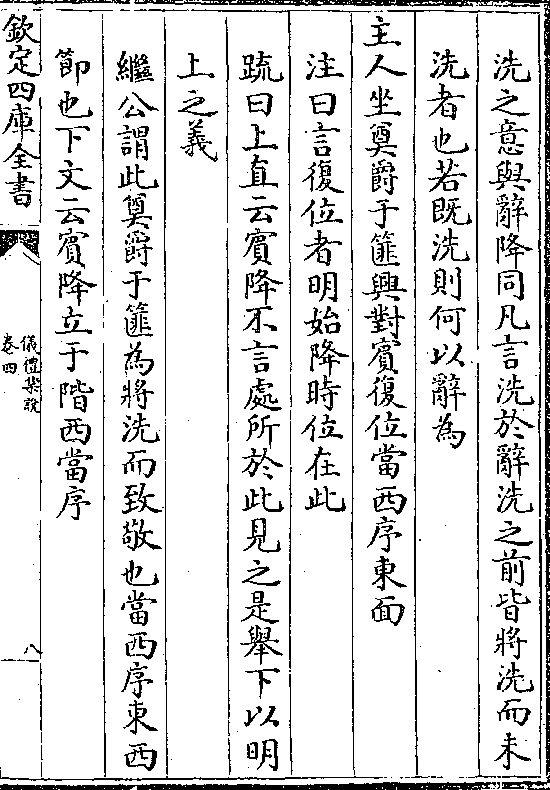 洗之意與辭降同凡言洗於辭洗之前皆將洗而未
洗者也若既洗則何以辭為
主人坐奠爵于篚興對賔復位當西序東面
注曰言復位者明始降時位在此
疏曰上直云賔降不言處所於此見之是舉下以明
上之義
繼公謂此奠爵于篚為將洗而致敬也當西序東西
節也下文云賔降立于階西當序
欽定四庫全書
儀禮集說
卷四
八